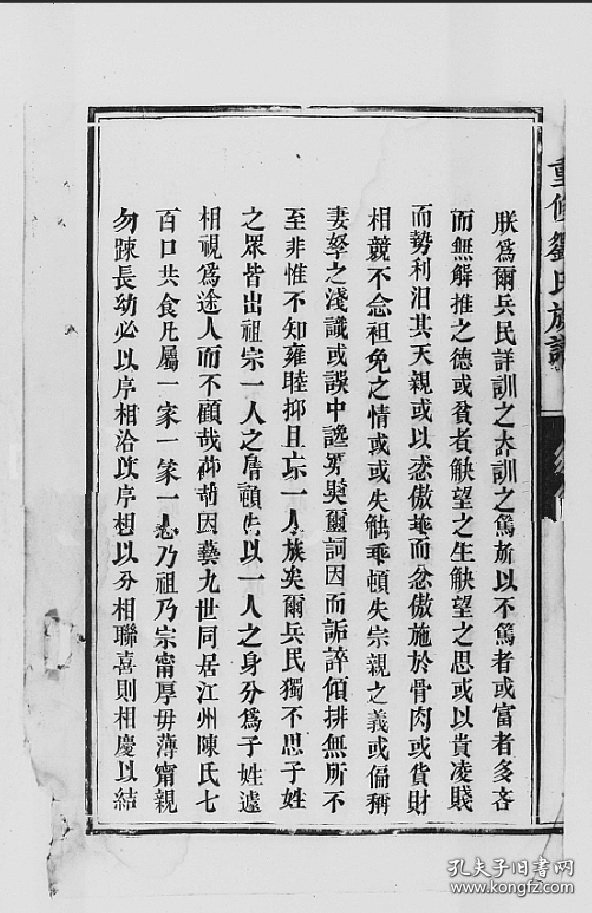 重修劉氏族譜
朕爲爾兵民詳訓之大訓之篤所以不篤者或富者多吝
而無解推之德或貧者觖望之生觖望之思或以貴凌賤
而勢利汨其天親或以恣傲乖而忿傲施於骨肉或貨財
相競不念袒免之情或或失觸乖頓失宗親之義或偏稱
妻孥之淺識或誤中讒男與爾詞因而詬誶傾排無所不
至非惟不知雍睦抑且忘一人族矣爾兵民獨不思子姓
之眾皆出祖宗一人之詹頓失以一人之身分爲子姓遽
相視爲途人而不顧哉昔因藝九世同居江州陳氏七
百口共食凡屬一家一家一心乃祖乃宗甯厚毋薄甯親
勿踈長幼必以序相洽以序相以分相聯喜則相慶以結
孔夫子旧书网
www.kongfz.com